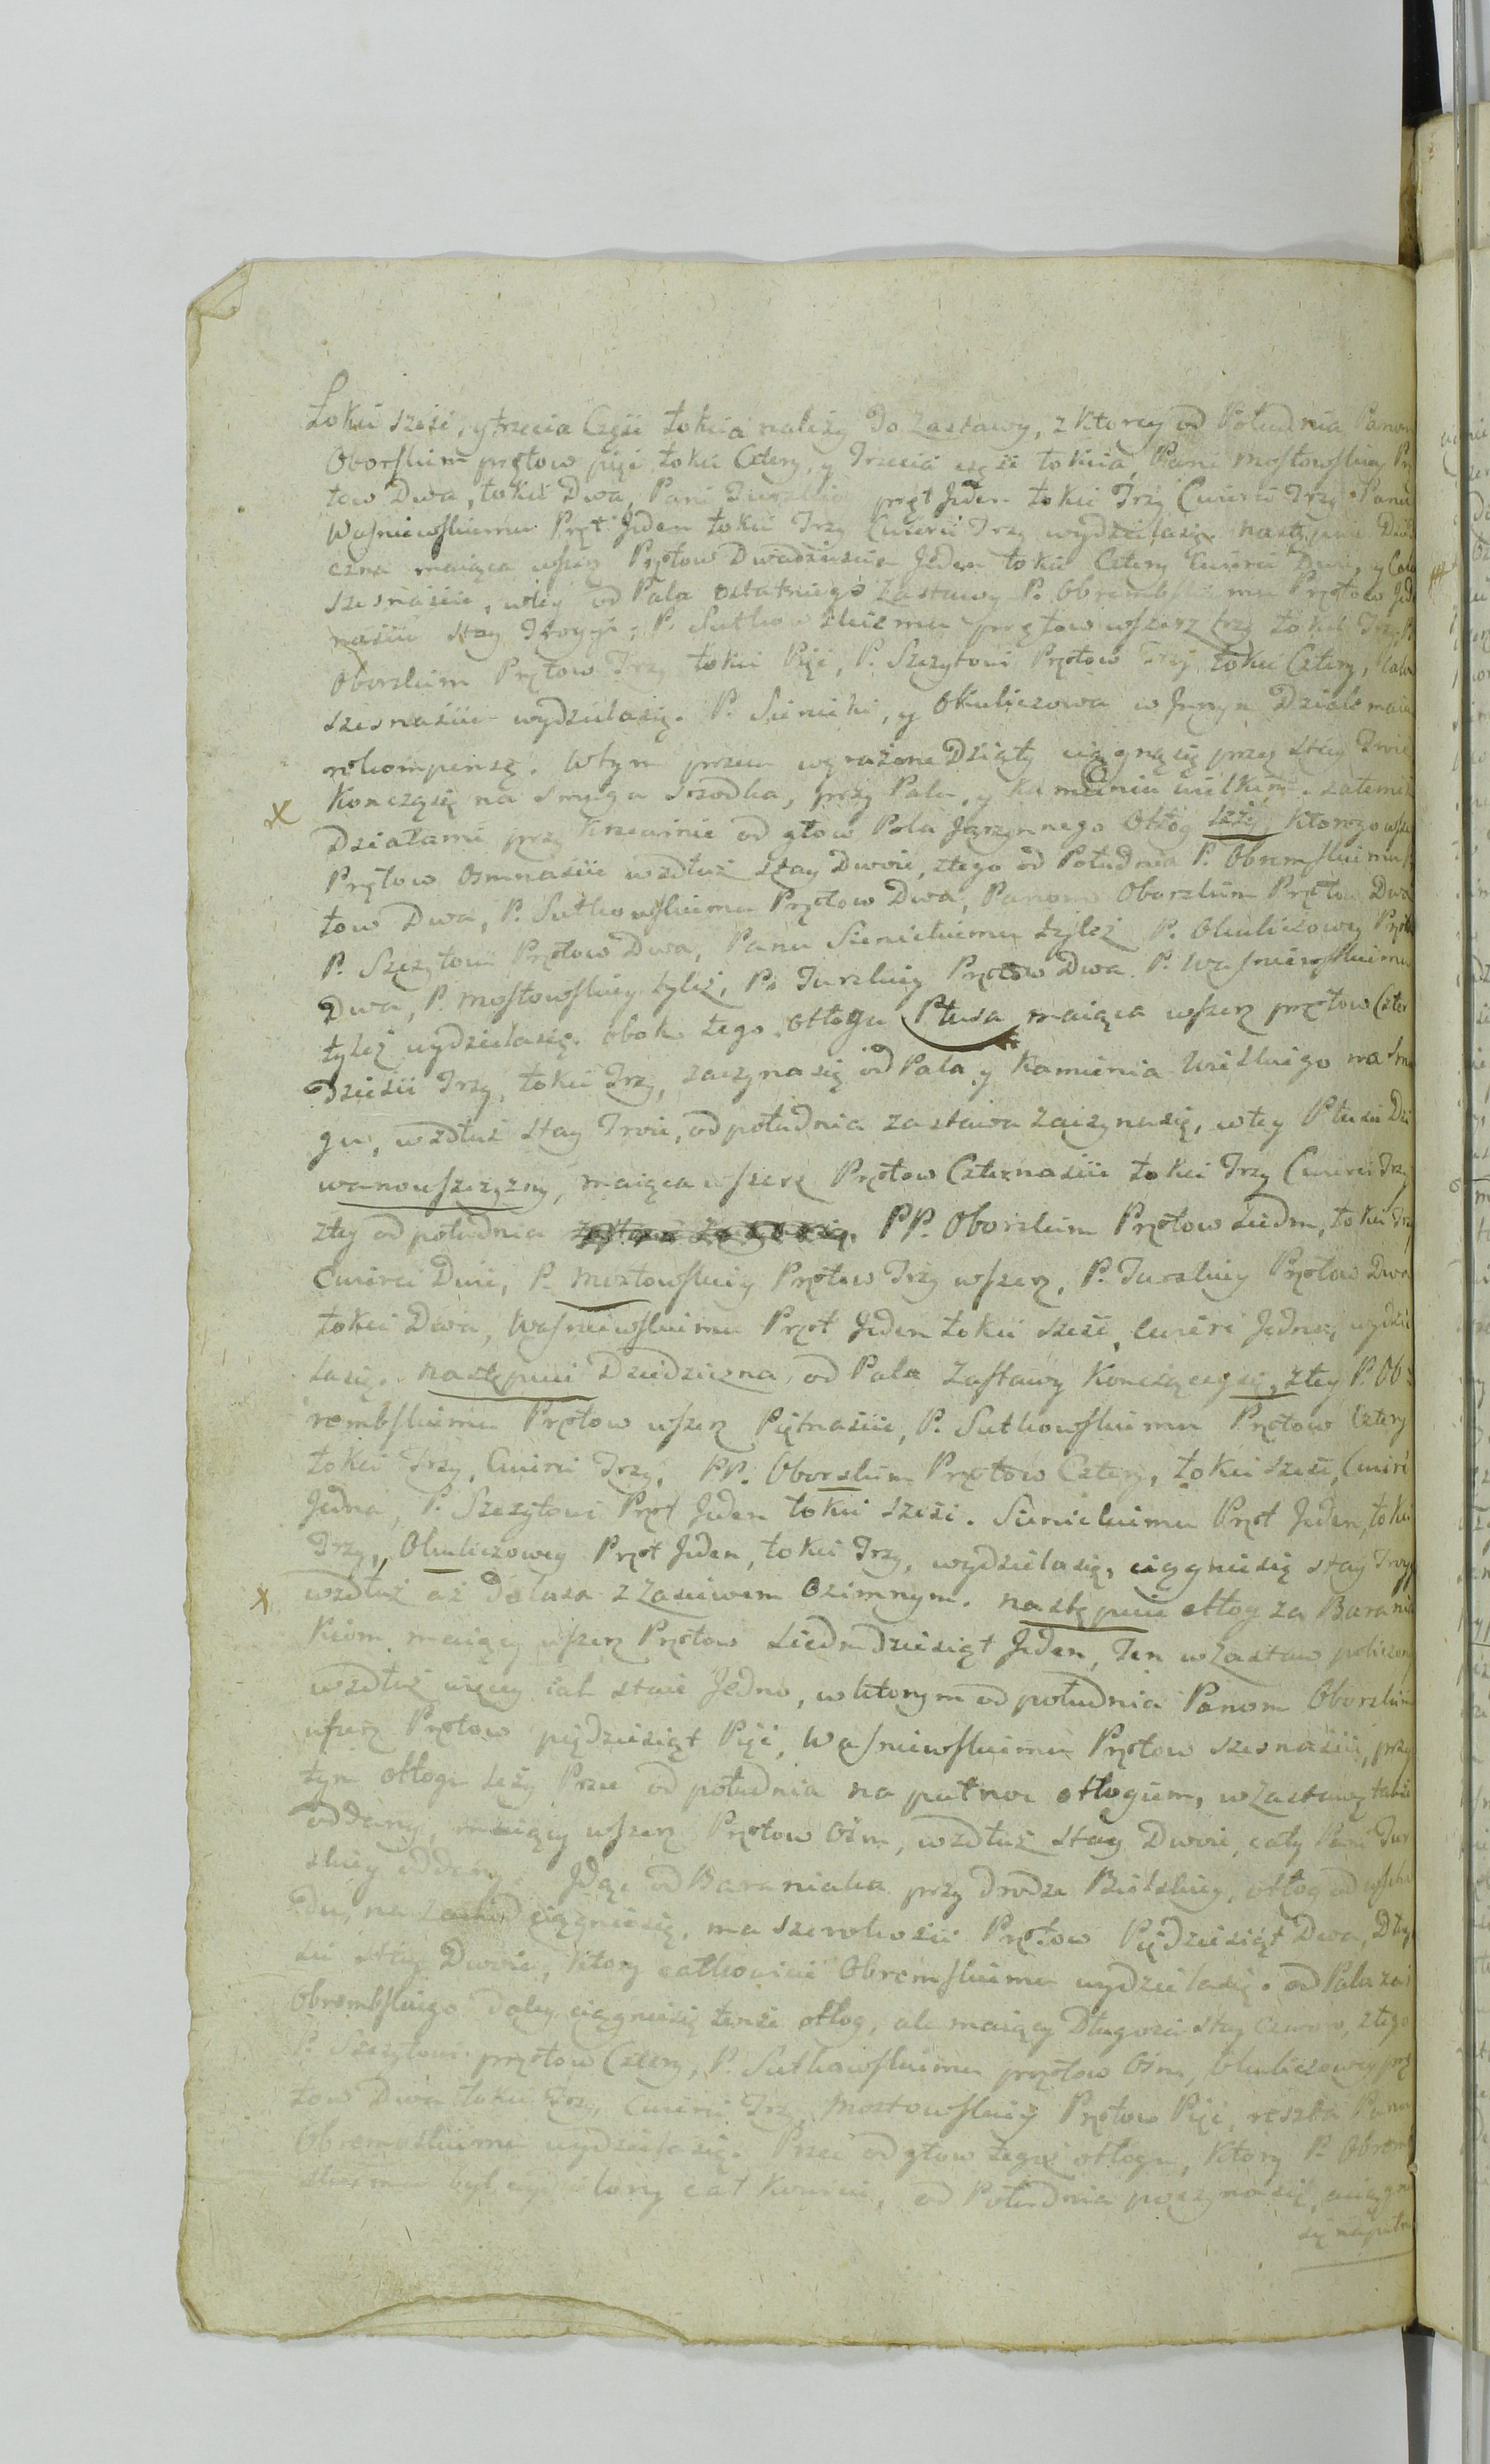 Łokci sześć, y trzecia Część Łokcia należy do Zastawy, z Ktorey od Południa Panom
Oborskim prętow pięć, łokci Cztery, y Trzecia część łokcia, Pani Mostowskiey Prę
tow Dwa, łokci Dwa, Pani Turskiey pręt Jeden łokci Trzy Cwierci Trzy Panu
Waśniewskiemu Pręt Jeden łokci Trzy Cwierci Trzy wydzielasię. następuie
czna maiąca wszerz Prętow Dwadziescia Jeden łokci Cztery Cwierci Dwie, y Cali
szesnaście, w tey od Pala ostatniego Zastawy P. Obrembskiemu Prętow Jede
naście stay Troyga, P. Sutkowskiemu prętow wszerz trzy łokci Trzy P.
Oborskim Prętow Trzy łokci Pięć, P. Szczytowi Prętow Trzy łokci Cztery, Calow
szesnaście wydzielasię. P. Sienicki, y Okuliczowa w Jnnym Dziale maią
rekompensę. W tym przeto wyrażone Działy ciągną się przez stay Troie
Kończąsię na smuga srzodka, przy Palu, y Kamieniu wielkim. za temiż
Działami przy Krzewinie od głow Pola Jarzynnego Obłog leży, Ktorego wszerz
Prętow Osmnaście wzdłuż stay Dwoie, z tego od Południa P. Obremskiemu
tow Dwa, P. Sutkowskiemu Prętow Dwa, Panom Oborskim Prętow Dwa
P. Szczytowi Prętow Dwa, Panu Sienickiemu tyleż P. Okuliczowey Pręto
Dwa, P. Mostowskiey tyleż, P. Turskiey Prętow Dwa P. Waśniewskiemu
tyleż wydzielasię. obok tego obłogu Płusa maiąca wszerz prętow Czter
dzieści Trzy, łokci Trzy, zaczyna się od Pala y Kamienia Wielkiego na smu
gu, wzdłuż stay Troie, od południa zastawa zaczynasię, w tey Płusie Dzi
wanowszczyzny, maiąca wszerz Prętow Czternaście łokci Trzy Cwierci Trzy
z tey od południa PP. Oborskim Prętow siedm, łokci Trzy
Cwierci Dwie, P. Mostowskiey Prętow Trzy wszerz, P. Turskiey Prętow Dwa
łokci Dwa, Waśniewskiemu Pręt Jeden łokci sześć, Cwierć Jedna, wydzie
lasię. następuie Dziedziczna, od Pala Zastawy Kończącey się, z tey P. Ob:
rembskiemu Prętow wszerz Piętnaście, P. Sutkowskiemu Prętow Cztery
łokci Trzy, Cwierci Trzy, PP. Oborskim Prętow Cztery, łokci sześć, Cwierć
Jedna, P. Szczytowi Pręt Jeden łokci sześć. Sienickiemu Pręt Jeden, łokci
Trzy, Okuliczowey Pręt Jeden, łokci Trzy, wydzielasię, ciągniesię stay Troyga
wzdłuż aż do lasa z Zasiewem Ozimnym. następuie obłog za Barania
Kiem maiący wszerz Prętow siedmdziesiąt Jeden, Ten w Zastaw policzony
wzdłuż więcey iak staie Jedno, w ktorym od południa Panom Oborskim
wszerz Prętow pięćdziesiąt Pięć, Waśniewskiemu Prętow szesnaście, przy
tym obłogu leży Prze od południa na pułnoc obłogiem, w Zastawę także
oddany, maiący wszerz Prętow Ośm, wzdłuż stay Dwoie, cały Pani Tur
skiey oddany. Jdąc od Baraniaka przy drodze Bielskiey, obłog od wscho
du, na zachod ciągniesię, ma szerokości Prętow Pięćdziesiąt Dwa, Dłu
ści stay Dwoie, Ktory całkowicie Obremskiemu wydzielasię. od Pala zaś
Obrembskiego daley ciągniesię tenże obłog, ale maiący Długości stay Czworo, z tego
P. Szczytowi prętow Cztery, P. Sutkowskiemu prętow Ośm, Okuliczowey prę
tow Dwa łokci Trzy, Cwierci Trzy, Mostowskiey Prętow Pięć, reszta Panu
Obremskiemu wydzielasię. Prze od głow tegoż obłogu, Ktory P. Obremb
skiemu był wydzielony całkowicie, od Południa poczynasię, ciągnie
się na pułno